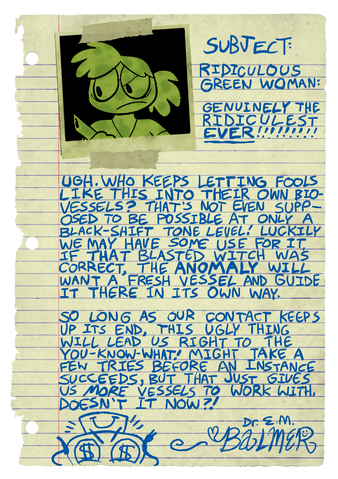 SUBJECT:
RIDICULOUS
GREEN WOMAN:
GENUINELY THE
RIDICULEST
EVER!!!!!!!!!
UGH. WHO KEEPS LETTING FOOLS
LIKE THIS INTO THEIR OWN BIO-
VESSELS? THAT'S NOT EVEN SUPP-
OSED TO BE POSSIBLE AT ONLY A
BLACK-SHIFT TONE LEVEL! LUCKILY
WE MAY HAVE SOME USE FOR IT
IF THAT BLASTED WITCH WAS
CORRECT. THE ANOMALY WILL
WANT A FRESH VESSEL AND GUIDE
IT THERE IN ITS OWN WAY.
SO LONG AS OUR CONTACT KEEPS
UP ITS END, THIS UGLY THING
WILL LEAD US RIGHT TO THE
YOU-KNOW-WHAT! MIGHT TAKE A
FEW TRIES BEFORE AN INSTANCE
SUCCEEDS, BUT THAT JUST GIVES
US MORE VESSELS TO WORK WITH,
DOESN'T IT NOW?!
$ $
Dr. E. M.
BALMER